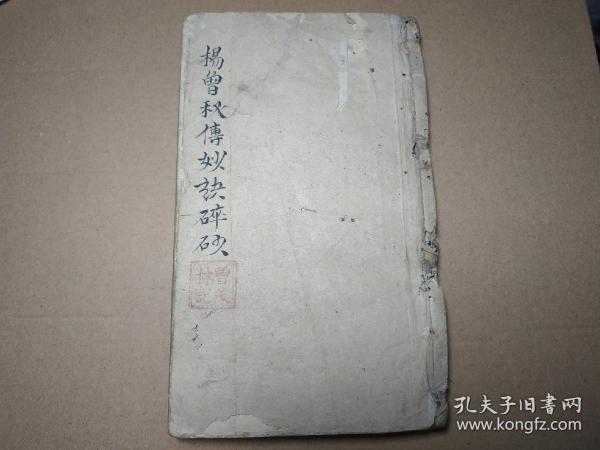 楊曾秋傳妙訣碎砂
曾
林記
孔夫子旧书网
www.kongfz.com